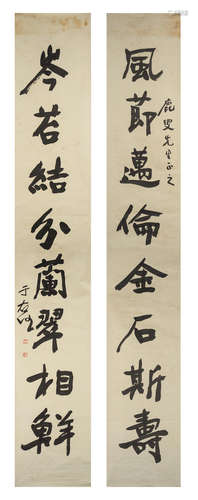 風節邁倫金石斯壽
鹿叟先生正之
岑若結分蘭翠相鮮
于右任